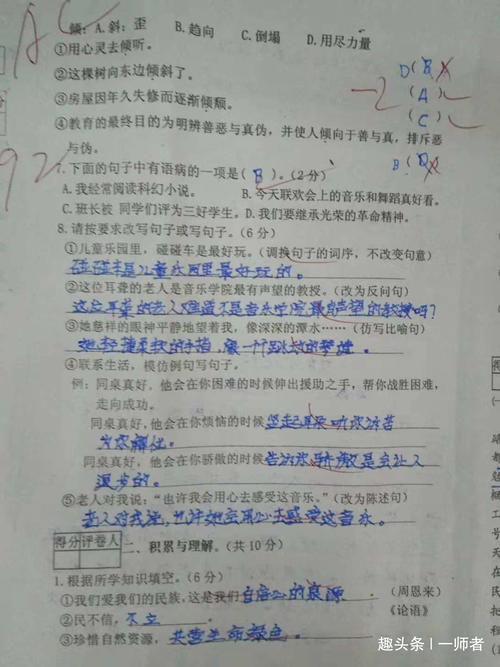 倾：A.斜；歪 B.趋向 C.倒塌 D.用尽力量
①用心灵去倾听。 D(B)
②这棵树向东边倾斜了。 -2 (A)
③房屋因年久失修而逐渐倾颓。 (C)
④教育的最终目的为明辨善恶与真伪，并使人倾向于善与真，排斥
恶与伪。 B(D)
92
7.下面的句子中有语病的一项是(B)。(2分)
A.我经常阅读科幻小说。 B.今天联欢会上的音乐和舞蹈真好看。
C.班长被 同学们评为三好学生。D.我们要继承光荣的革命精神。
8.请按要求改写句子或写句子。(6分)
①儿童乐园里，碰碰车是最好玩。(调换句子的词序，不改变句意)
碰碰车是儿童乐园里最好玩的。
②这位耳聋的老人是音乐学院最有声望的教授。(改为反问句)
这位耳聋的老人难道不是音乐学院最有声望的教授吗？
③她慈祥的眼神平静地望着我，像深深的潭水……(仿写比喻句)
她轻揉柔软的手指，像一个
④联系生活，模仿例句写句子。
例：同桌真好，他会在你困难的时候伸出援助之手，帮你战胜困难，
走向成功。
同桌真好，他会在你烦恼的时候竖起耳朵听你诉苦
为你解忧。
同桌真好，他会在你骄傲的时候告诉你骄傲是会让人
退步的。
⑤老人对我说：“也许我会用心去感受这音乐。”(改为陈述句)
老人对我说，也许她会用心去感受这音乐。
得分 评卷人
二、积累与理解。(共10分)
1.根据所学知识填空。(6分)
①我们爱我们的民族，这是我们自信心的泉源。 (周恩来)
②民不信，不立。 《论语》
③珍惜自然资源，共营生命绿色。
趣头条 | 一师者